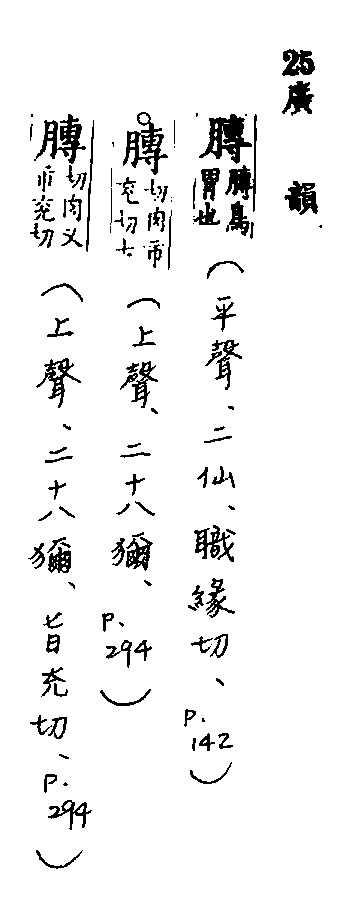 25廣韻
膞 膞鳥胃也(平聲、二仙、職緣切、p.142)
膞 切肉市兖切六(上聲、二十八獮、p.294)
膞 切肉又市兖切(上聲、二十八獮、旨兖切、p.294)